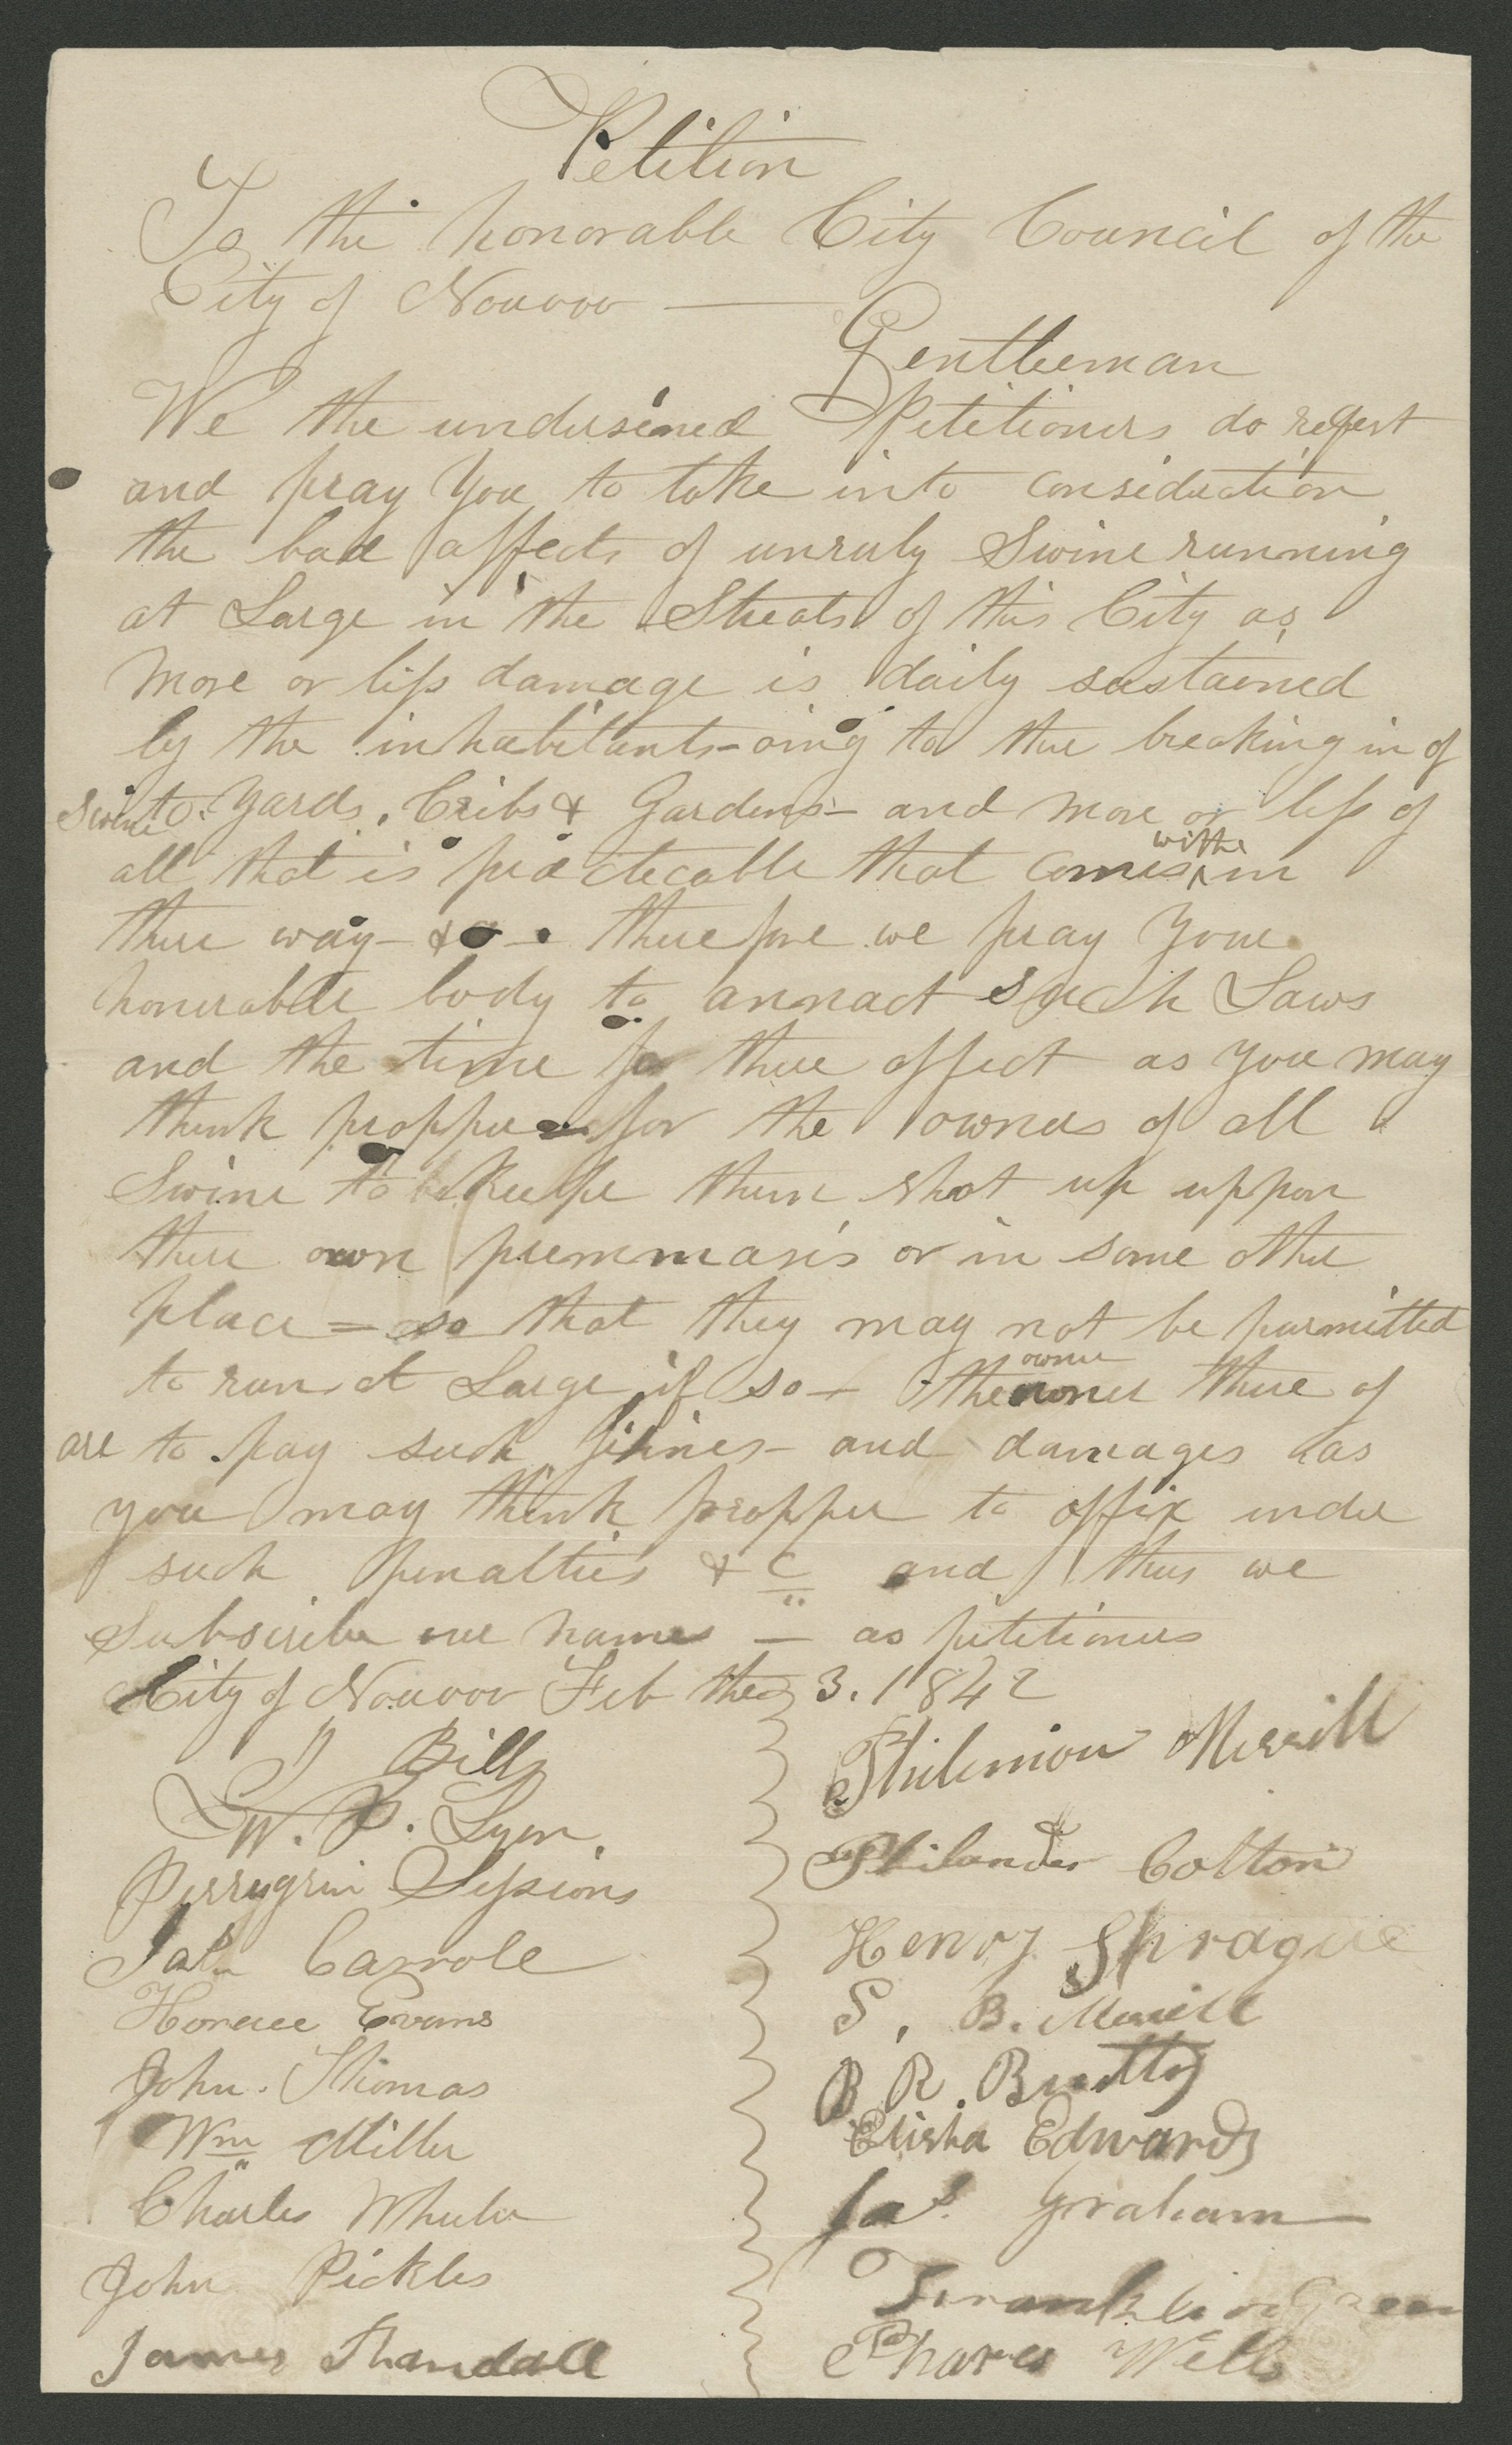 Petition
To the honorable City Council of the
City of Nouvoo —
Gentleeman
We the undersined Petitioners do reqest
and pray you to take into consideration
the bad affects of unruly Swine running
at Large in the Streats of this City as
more or less damage is daily sustained
by the inhabitants - oing to the breaking in of
swine to. Yards, Cribs & Gardens - and more or less of
all that is practecable that comes withe in
there way - & - therefore we pray your
honerable body to annact such Laws
and the time for there effect as you may
think propper for the owners of all
Swine to keepe them shot up uppon
there own premmasis or in some other
place = so that they may not be parmitted
to run at Large if so - the owner there of
are to pay such fines - and damages as
you may think propper to affix under
such penalties & C and thus we
Subscribe our names — as petitioners
City of Nouvoo Feb the 3. 1842
J Bills
W. P. Lyon.
Perrygrin Sessions
Carrole
Horace Evans
John. Thomas
Wm Miller
Charles Wheeler
John Pickles
James Standall
Philemon Merrill
Philander Colton
Henry Sprague
S. B. Merrill
B R. Bently
Elisha Edwards
Jas. Graham
Franklin
Phares Wells